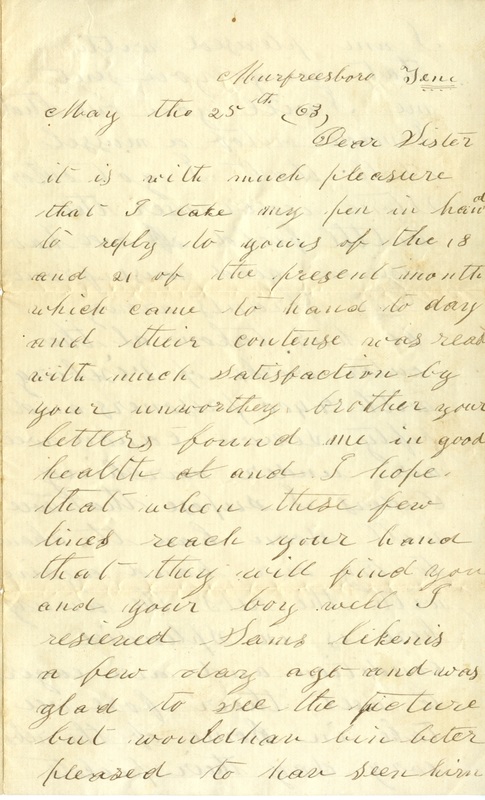 Murfreesboro Ten.
May the 25th (63)
Dear Sister
it is with much pleasure
that I take my pen in hand
to reply to yours of the 18
and 21 of the present month
which came to hand to day
and their contense was read
with much satisfaction by
your unworthey brother your
letters found me in good
health at and I hope
that when these few
lines reach your hand
that they will find you
and your boy well I
resieved Sams likenis
a few day ago and was
glad to see the picture
but would hav bin beter
pleased to hav seen him